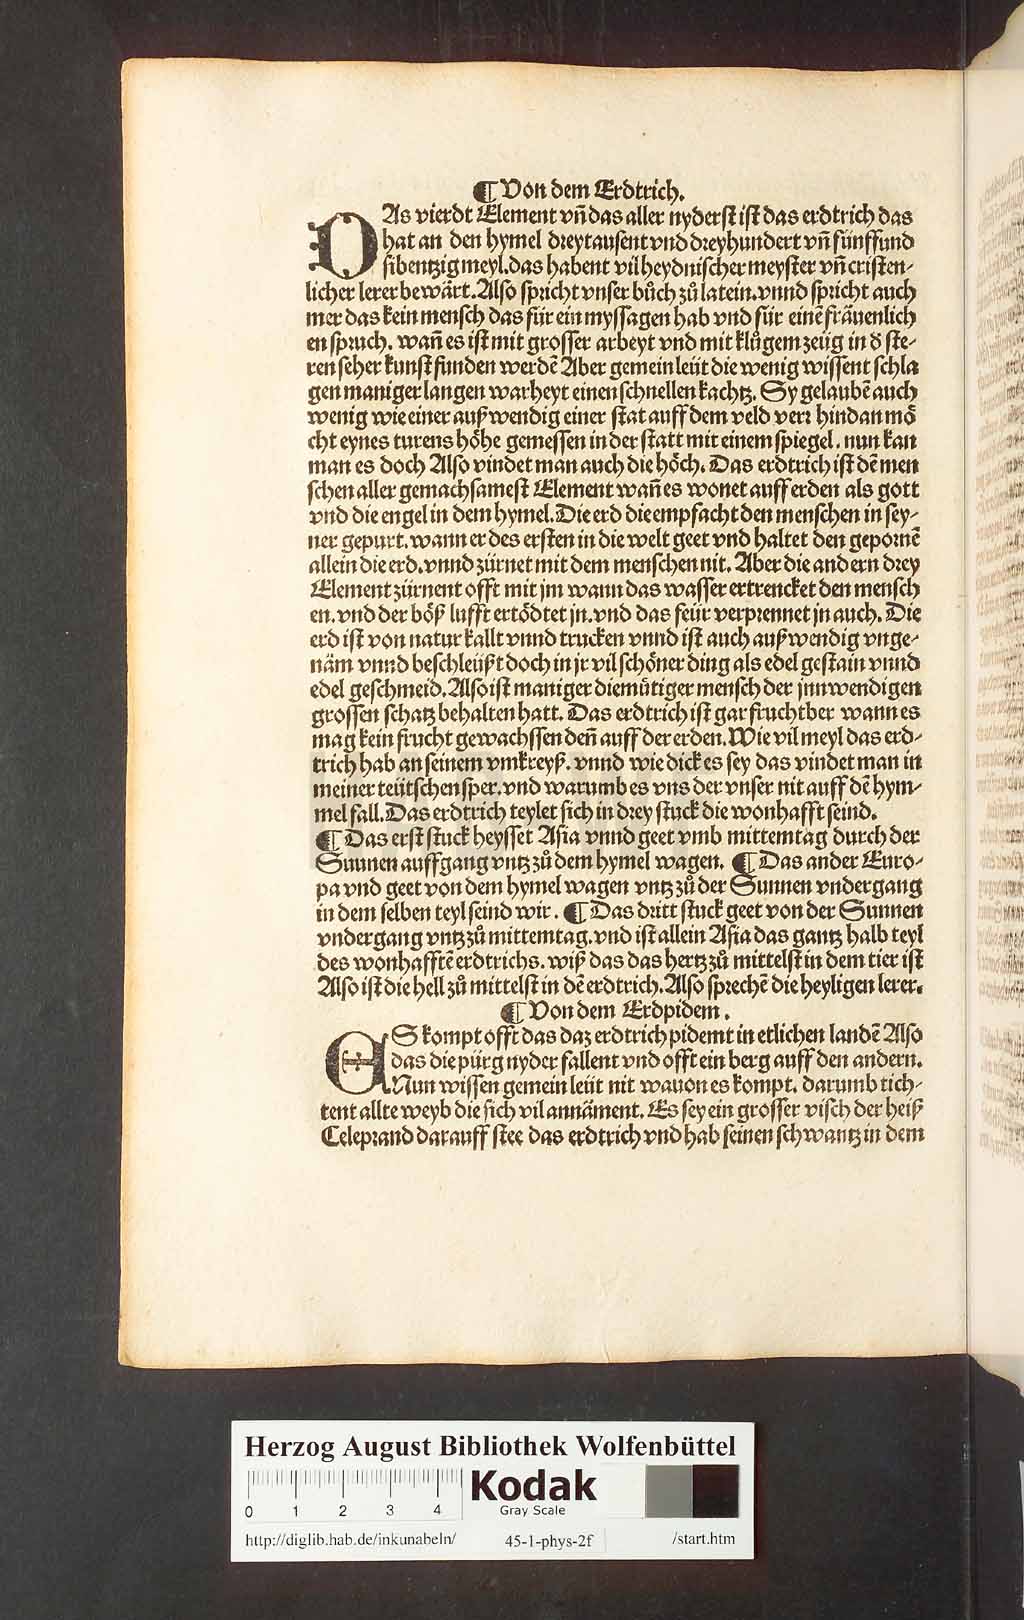 ¶ Von dem Erdtrich.
DAs vierdt Element vn̄ das aller nyderst ist das erdtrich das
hat an den hymel dreytausent vnd dreyhundert vn̄ fünffund
sibentzig meyl. das habent vil heydnischer meyster vn̄ cristen-
licher lerer bewärt. Also spricht vnser bůch zů latein. vnnd spricht auch
mer das kein mensch das für ein myssagen hab vnd für einē fräuenlich
en spruch. wan̄ es ist mit grosser arbeyt vnd mit klůgem zeüg in d̛ ste-
ren seher kunst funden werdē Aber gemein leüt die wenig wissent schla
gen maniger langen warheyt einen schnellen kachtz. Sy gelaubē auch
wenig wie einer außwendig einer stat auff dem veld verr hindan mö
cht eynes turens höhe gemessen in der statt mit einem spiegel. nun kan
man es doch Also vindet man auch die höch. Das erdtrich ist dē men
schen aller gemachsamest Element wan̄ es wonet auff erden als gott
vnd die engel in dem hymel. Die erd die empfacht den menschen in sey-
ner gepurt. wann er des ersten in die welt geet vnd haltet den gepornē
allein die erd. vnnd zürnet mit dem menschen nit. Aber die andern drey
Element zürnent offt mit jm wann das wasser ertrencket den mensch
en. vnd der böß lufft ertödtet jn. vnd das feür verprennet jn auch. Die
erd ist von natur kallt vnnd trucken vnnd ist auch außwendig vnge-
näm vnnd beschleüßt doch in jr vil schöner ding als edel gestain vnnd
edel geschmeid. Also ist maniger diemütiger mensch der jnnwendigen
grossen schatz behalten hatt. Das erdtrich ist gar fruchtber wann es
mag kein frucht gewachssen den̄ auff der erden. Wie vil meyl das erd-
trich hab an seinem vmkreyß. vnnd wie dick es sey das vindet man in
meiner teütschen sper. vnd warumb es vns der vnser nit auff dē hym-
mel fall. Das erdtrich teylet sich in drey stuck die wonhafft seind.
¶ Das erst stuck heysset Asia vnnd geet vmb mittemtag durch der
Suunen auffgang vntz zů dem hymel wagen. ¶ Das ander Euro-
pa vnd geet von dem hymel wagen vntz zů der Sunnen vndergang
in dem selben teyl seind wir. ¶ Das dritt stuck geet von der Sunnen
vndergang vntz zů mittemtag. vnd ist allein Asia das gantz halb teyl
des wonhafftē erdtrichs. wiß das das hertz zů mittelst in dem tier ist
Also ist die hell zů mittelst in dē erdtrich. Also sprechē die heyligen lerer.
¶ Von dem Erdpidem.
ES kompt offt das daz erdtrich pidemt in etlichen landē Also
das die pürg nyder fallent vnd offt ein berg auff den andern.
Nun wissen gemein leüt nit wauon es kompt. darumb tich-
tent allte weyb die sich vil annäment. Es sey ein grosser visch der heiß
Celeprand darauff stee das erdtrich vnd hab seinen schwantz in dem
Herzog August Bibliothek Wolfenbüttel
0 1 2 3 4
Kodak
Gray Scale
http://diglib.hab.de/inkunabeln/ 45-1-phys-2f /start.htm